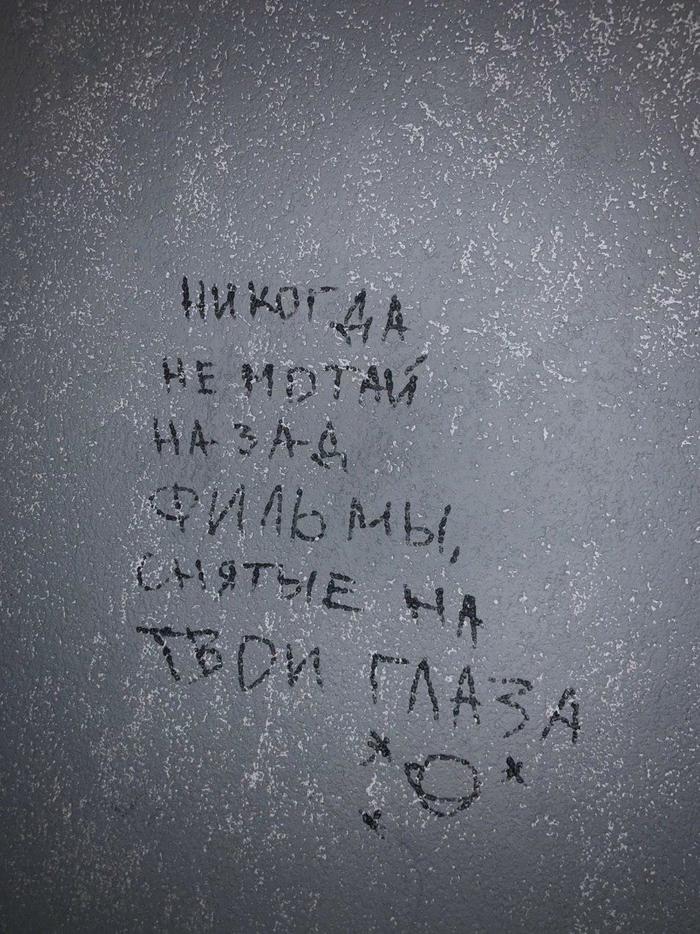 НИКОГДА
НЕ МОТАЙ
НАЗАД
ФИЛЬМЫ,
СНЯТЫЕ НА
ТВОИ ГЛАЗА